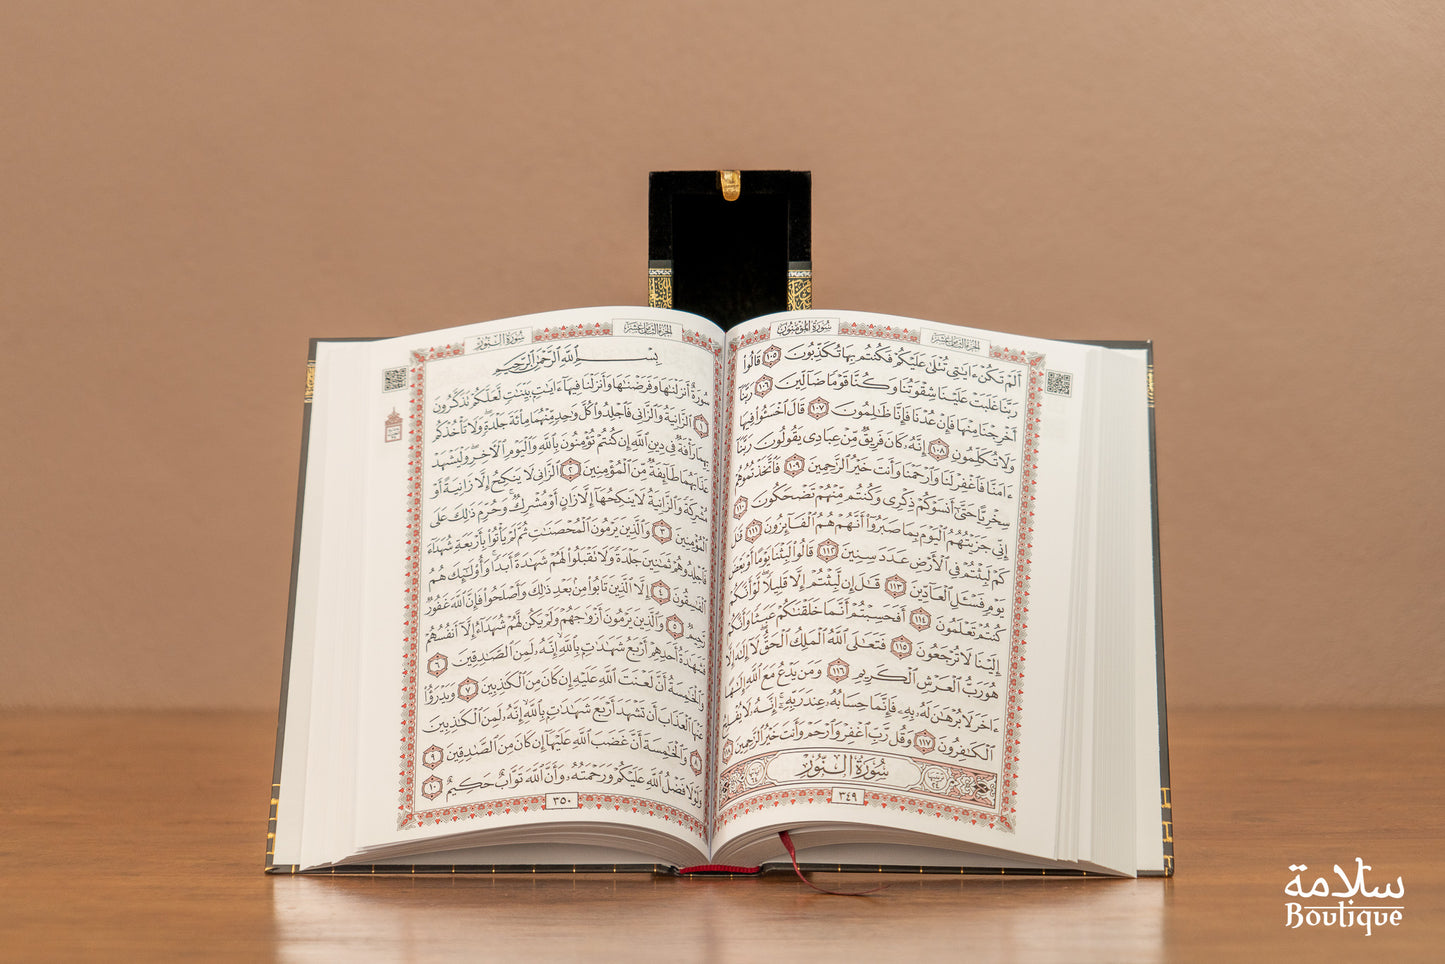 سُورَةُ المُؤْمِنُون
الجُزْءُ الثَّامِنَ عَشَرَ
أَلَمْ تَكُنْ ءَايَٰتِى تُتْلَىٰ عَلَيْكُمْ فَكُنتُم بِهَا تُكَذِّبُونَ ١٠٥ قَالُوا۟
رَبَّنَا غَلَبَتْ عَلَيْنَا شِقْوَتُنَا وَكُنَّا قَوْمًا ضَآلِّينَ ١٠٦ رَبَّنَآ
أَخْرِجْنَا مِنْهَا فَإِنْ عُدْنَا فَإِنَّا ظَٰلِمُونَ ١٠٧ قَالَ ٱخْسَـُٔوا۟ فِيهَا
وَلَا تُكَلِّمُونِ ١٠٨ إِنَّهُۥ كَانَ فَرِيقٌ مِّنْ عِبَادِى يَقُولُونَ رَبَّنَآ
ءَامَنَّا فَٱغْفِرْ لَنَا وَٱرْحَمْنَا وَأَنتَ خَيْرُ ٱلرَّٰحِمِينَ ١٠٩ فَٱتَّخَذْتُمُوهُمْ
سِخْرِيًّا حَتَّىٰٓ أَنسَوْكُمْ ذِكْرِى وَكُنتُم مِّنْهُمْ تَضْحَكُونَ ١١٠
إِنِّى جَزَيْتُهُمُ ٱلْيَوْمَ بِمَا صَبَرُوٓا۟ أَنَّهُمْ هُمُ ٱلْفَآئِزُونَ ١١١ قَٰلَ
كَمْ لَبِثْتُمْ فِى ٱلْأَرْضِ عَدَدَ سِنِينَ ١١٢ قَالُوا۟ لَبِثْنَا يَوْمًا أَوْ بَعْضَ
يَوْمٍ فَسْـَٔلِ ٱلْعَآدِّينَ ١١٣ قَٰلَ إِن لَّبِثْتُمْ إِلَّا قَلِيلًا لَّوْ أَنَّكُمْ
كُنتُمْ تَعْلَمُونَ ١١٤ أَفَحَسِبْتُمْ أَنَّمَا خَلَقْنَٰكُمْ عَبَثًا وَأَنَّكُمْ
إِلَيْنَا لَا تُرْجَعُونَ ١١٥ فَتَعَٰلَى ٱللَّهُ ٱلْمَلِكُ ٱلْحَقُّ لَآ إِلَٰهَ إِلَّا
هُوَ رَبُّ ٱلْعَرْشِ ٱلْكَرِيمِ ١١٦ وَمَن يَدْعُ مَعَ ٱللَّهِ إِلَٰهًا
ءَاخَرَ لَا بُرْهَٰنَ لَهُۥ بِهِۦ فَإِنَّمَا حِسَابُهُۥ عِندَ رَبِّهِۦٓ إِنَّهُۥ لَا يُفْلِحُ
ٱلْكَٰفِرُونَ ١١٧ وَقُل رَّبِّ ٱغْفِرْ وَٱرْحَمْ وَأَنتَ خَيْرُ ٱلرَّٰحِمِينَ ١١٨
سُورَةُ النُّورِ
٣٤٩
الجُزْءُ الثَّامِنَ عَشَرَ
سُورَةُ النُّور
بِسْمِ ٱللَّهِ ٱلرَّحْمَٰنِ ٱلرَّحِيمِ
سُورَةٌ أَنزَلْنَٰهَا وَفَرَضْنَٰهَا وَأَنزَلْنَا فِيهَآ ءَايَٰتٍۭ بَيِّنَٰتٍ لَّعَلَّكُمْ تَذَكَّرُونَ
١ ٱلزَّانِيَةُ وَٱلزَّانِى فَٱجْلِدُوا۟ كُلَّ وَٰحِدٍ مِّنْهُمَا مِا۟ئَةَ جَلْدَةٍ وَلَا تَأْخُذْكُم
بِهِمَا رَأْفَةٌ فِى دِينِ ٱللَّهِ إِن كُنتُمْ تُؤْمِنُونَ بِٱللَّهِ وَٱلْيَوْمِ ٱلْءَاخِرِ وَلْيَشْهَدْ
عَذَابَهُمَا طَآئِفَةٌ مِّنَ ٱلْمُؤْمِنِينَ ٢ ٱلزَّانِى لَا يَنكِحُ إِلَّا زَانِيَةً أَوْ
مُشْرِكَةً وَٱلزَّانِيَةُ لَا يَنكِحُهَآ إِلَّا زَانٍ أَوْ مُشْرِكٌ وَحُرِّمَ ذَٰلِكَ عَلَى
ٱلْمُؤْمِنِينَ ٣ وَٱلَّذِينَ يَرْمُونَ ٱلْمُحْصَنَٰتِ ثُمَّ لَمْ يَأْتُوا۟ بِأَرْبَعَةِ شُهَدَآءَ
فَٱجْلِدُوهُمْ ثَمَٰنِينَ جَلْدَةً وَلَا تَقْبَلُوا۟ لَهُمْ شَهَٰدَةً أَبَدًا وَأُو۟لَٰٓئِكَ هُمُ
ٱلْفَٰسِقُونَ ٤ إِلَّا ٱلَّذِينَ تَابُوا۟ مِنۢ بَعْدِ ذَٰلِكَ وَأَصْلَحُوا۟ فَإِنَّ ٱللَّهَ غَفُورٌ
رَّحِيمٌ ٥ وَٱلَّذِينَ يَرْمُونَ أَزْوَٰجَهُمْ وَلَمْ يَكُن لَّهُمْ شُهَدَآءُ إِلَّآ أَنفُسُهُمْ
فَشَهَٰدَةُ أَحَدِهِمْ أَرْبَعُ شَهَٰدَٰتٍۭ بِٱللَّهِ إِنَّهُۥ لَمِنَ ٱلصَّٰدِقِينَ ٦
وَٱلْخَٰمِسَةُ أَنَّ لَعْنَتَ ٱللَّهِ عَلَيْهِ إِن كَانَ مِنَ ٱلْكَٰذِبِينَ ٧ وَيَدْرَؤُا۟
عَنْهَا ٱلْعَذَابَ أَن تَشْهَدَ أَرْبَعَ شَهَٰدَٰتٍۭ بِٱللَّهِ إِنَّهُۥ لَمِنَ ٱلْكَٰذِبِينَ
٨ وَٱلْخَٰمِسَةَ أَنَّ غَضَبَ ٱللَّهِ عَلَيْهَآ إِن كَانَ مِنَ ٱلصَّٰدِقِينَ ٩
وَلَوْلَا فَضْلُ ٱللَّهِ عَلَيْكُمْ وَرَحْمَتُهُۥ وَأَنَّ ٱللَّهَ تَوَّابٌ حَكِيمٌ ١٠
٣٥٠
سلامة
Boutique